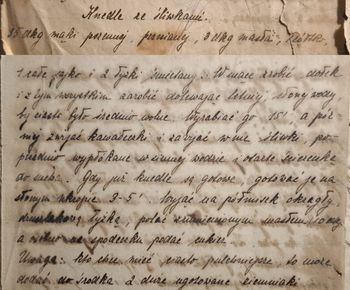 Knedle ze śliwkami.
35 dkg mąki pszennej, 3 dkg masła,
1 całe jajko i 2 łyżki śmietany. W mące zrobić dołek
i z tym wszystkim zarobić dolewając letniej słonej wody,
by ciasto było średnio wolne. Wyrabiać go 15' a potem
brać kawałeczki i zawijać w nie śliwki, po-
przednio wypłukane w zimnej wodzie i otarte ściereczką
do sucha. Gdy już knedle są gotowe, gotować je na
słonym ukropie 3-5'. Wyjąć na półmisek okrągły
łyżką, polać zrumienionym masłem
a osobno w spodeczku podać cukier.
Uwaga: kto chce mieć ciasto pulchniejsze, to może
dodać do środka 2 duże ugotowane ziemniaki